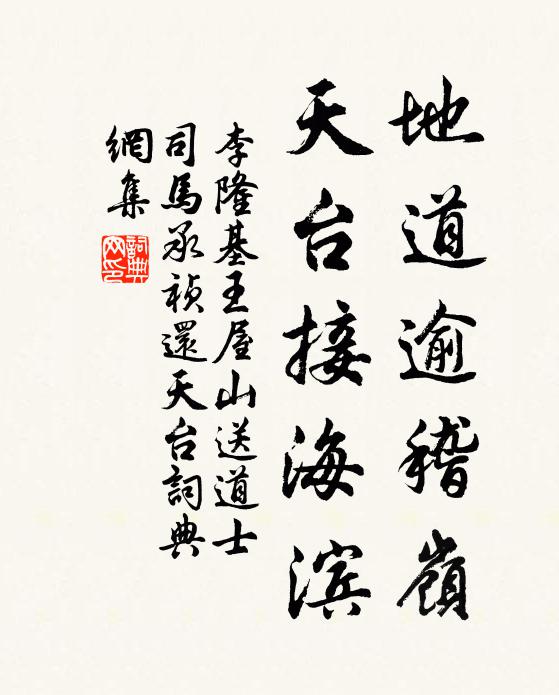 地道逾稽嶺
天台接海滨
李隆基王屋山送道士
司馬承禎還天台詞典
網集
詞典
网印